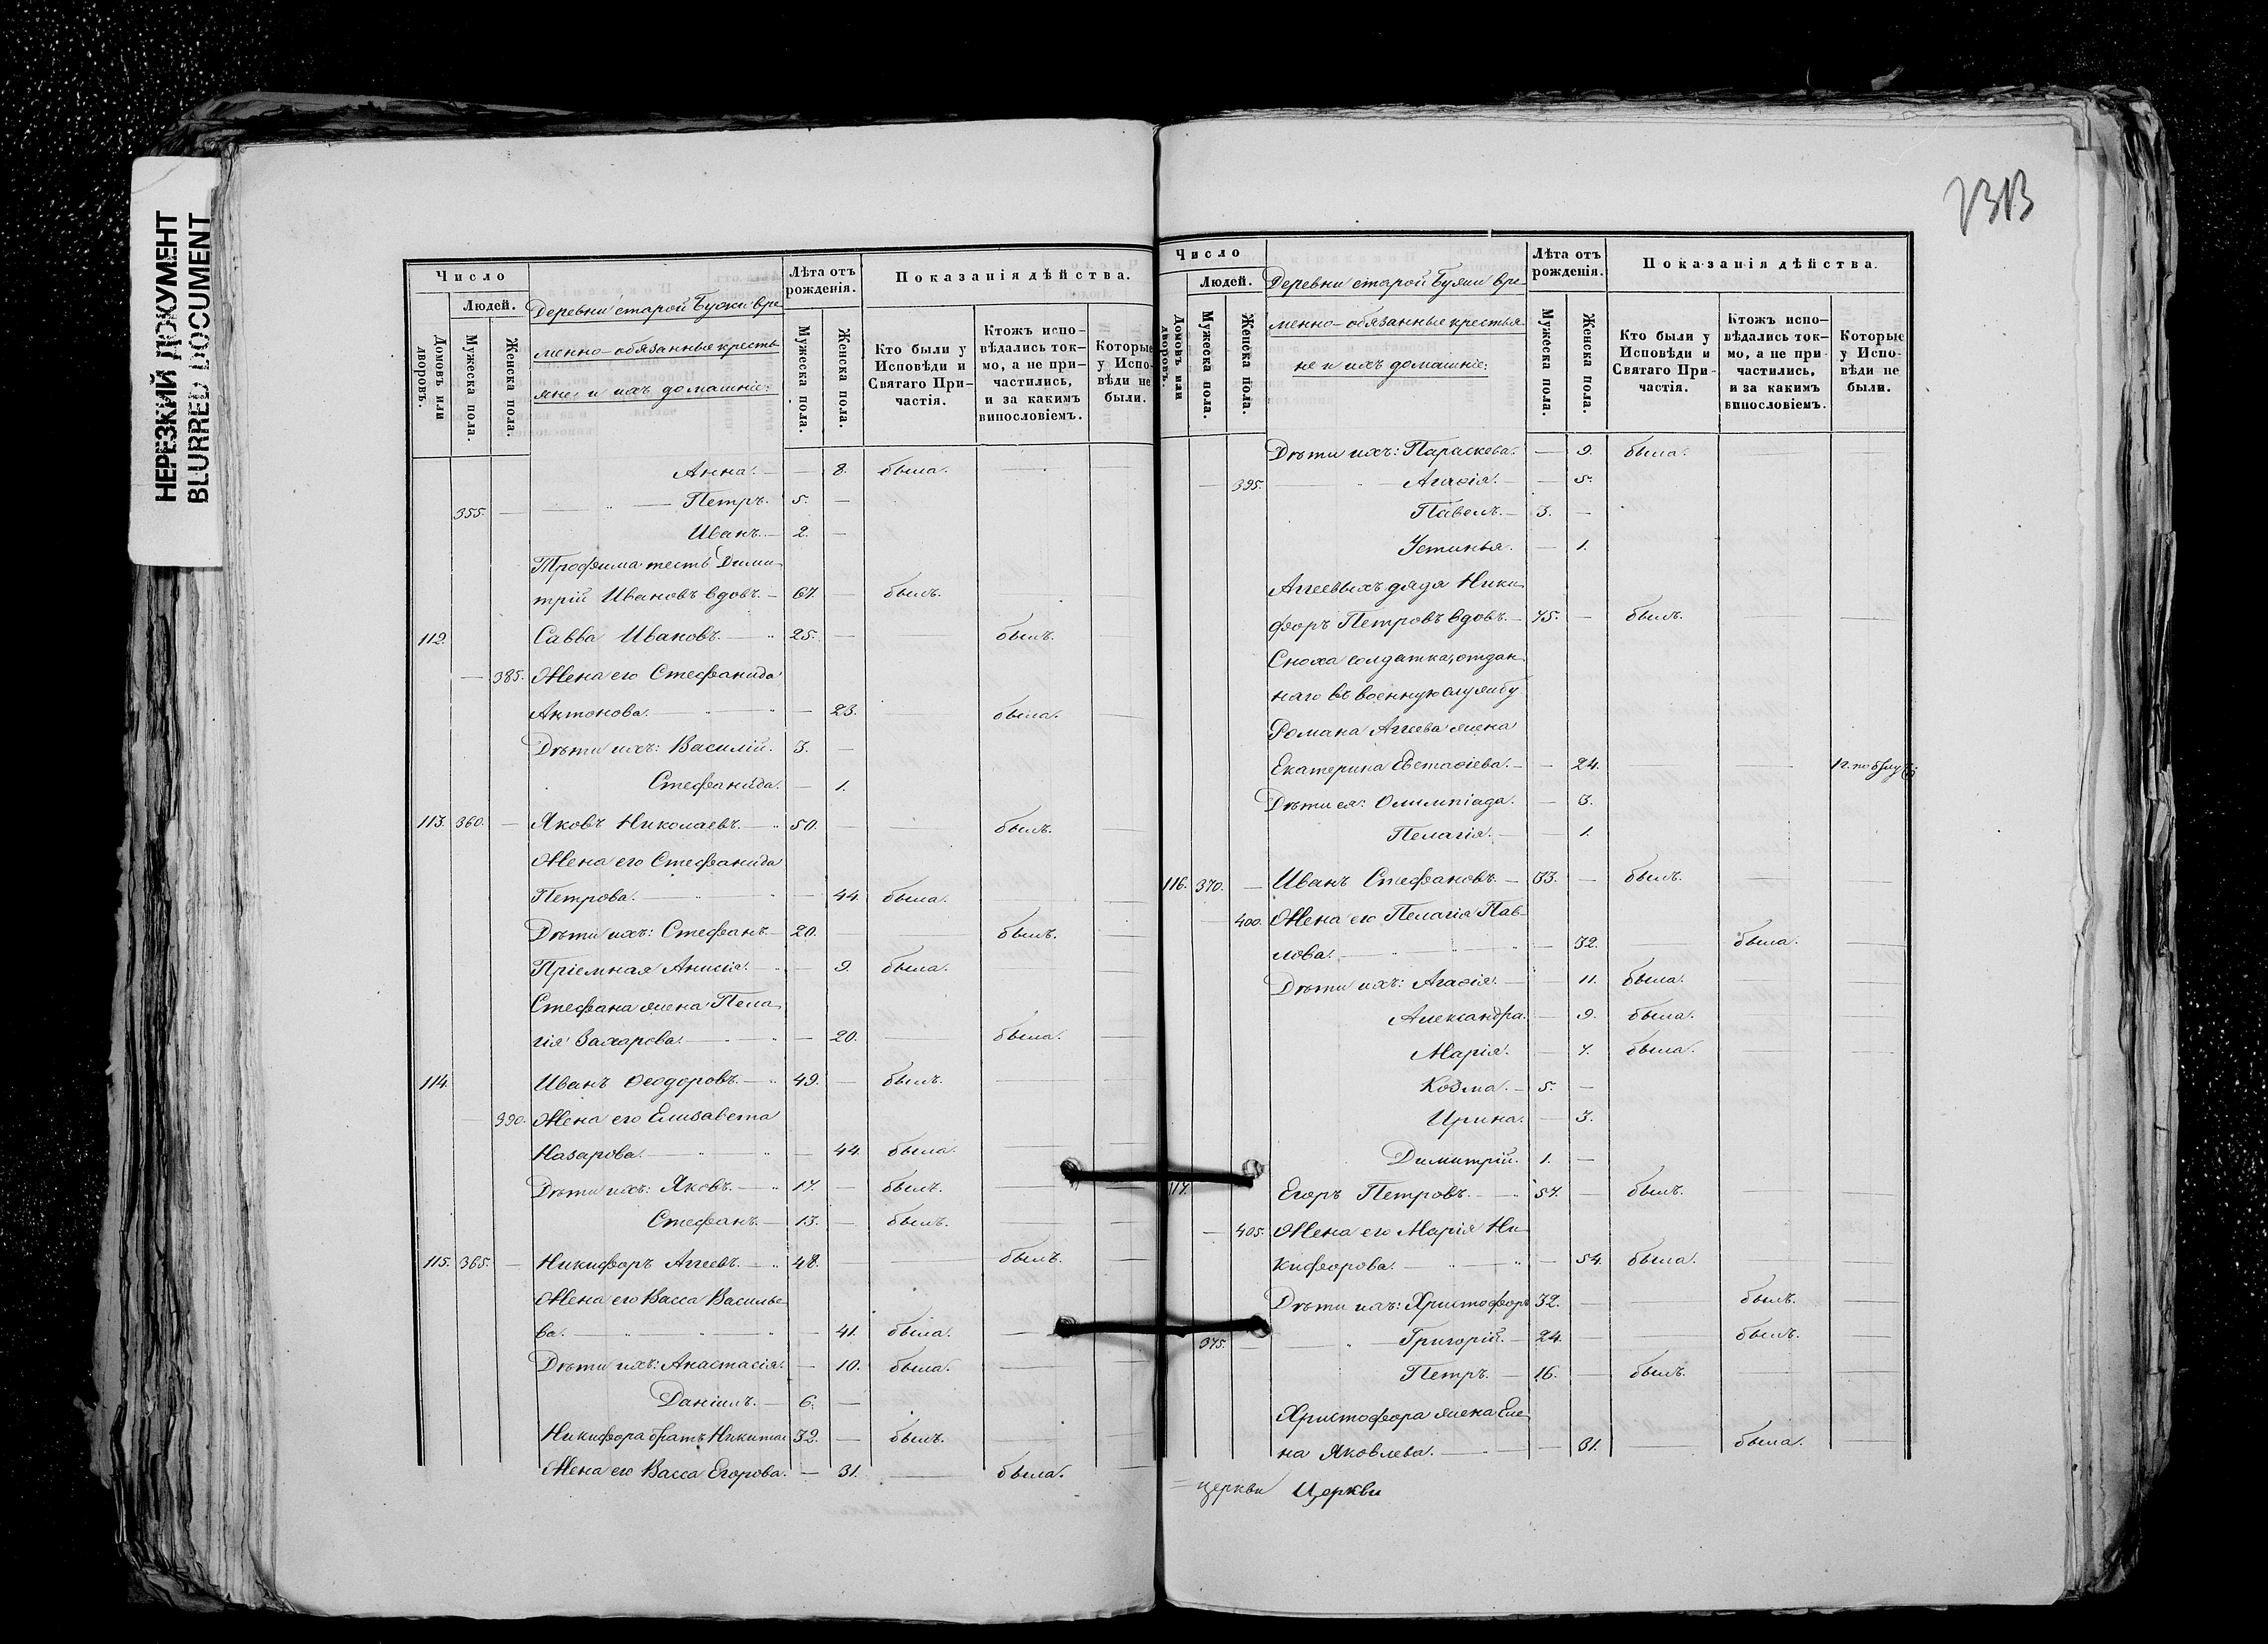 НЕРЕЗКИЙ ДОКУМЕНТ
BLURRED DOCUMENT
Число
Людей.
Домовъ или дворовъ.
Мужеска пола.
Женска пола.
Деревни старой Буяни вре
менно-обязанные кресть
яне, и ихъ домашніе:
Лѣта отъ рожденія.
Мужеска пола.
Женска пола.
Показанія дѣйства.
Кто были у Исповѣди и Святаго Причастія.
Ктожъ исповѣдались токмо, а не причастились, и за какимъ винословіемъ.
Которые у Исповѣди не были.
Анна. — — 8. была.
355. — — Петръ. 5. —
Иванъ. — 2. —
Трофима тесть Дими
трій Ивановъ вдовъ. — 67. — былъ.
112. Савва Ивановъ. — 25. — былъ.
— 385. Жена его Стефанида
Антонова. — — 23. — была. —
Дѣти ихъ: Василій. 3. —
Стефанида. — 1.
113. 360. — Яковъ Николаевъ. — 50. — былъ. —
Жена его Стефанида
Петрова. — — 44. была. —
Дѣти ихъ: Стефанъ. — 20. — былъ. —
Пріемная Анисія. — — 9. была.
Стефана жена Пела
гія Захарова. — — 20. — была. —
114. Иванъ Ѳеодоровъ. — 49. — былъ.
— 390. Жена его Елизавета
Назарова. — — 44. была. — —
Дѣти ихъ: Яковъ. — 17. — былъ. — —
Стефанъ. — 13. — былъ. — —
115. 365. — Никифоръ Аггеевъ. — 48. — — былъ. —
Жена его Васса Василье
ва. — — 41. была. —
Дѣти ихъ: Анастасія. — 10. была. —
Даніилъ. — 6. —
Никифора братъ Никита 32. — былъ.
Жена его Васса Егорова. — 31. — была. —
Число
Людей.
Домовъ или дворовъ.
Мужеска пола.
Женска пола.
Деревни старой Буяни вре
менно-обязанные крестья
не и ихъ домашніе:
Лѣта отъ рожденія.
Мужеска пола.
Женска пола.
Показанія дѣйства.
Кто были у Исповѣди и Святаго Причастія.
Ктожъ исповѣдались токмо, а не причастились, и за какимъ винословіемъ.
Которые у Исповѣди не были.
Дѣти ихъ: Параскева. — 9. была. — —
— 395. — Агаѳія. — — 5.
Павелъ. — 3. —
Устинья. — 1.
Аггеевыхъ дядя Ники
форъ Петровъ вдовъ. — 75. — былъ. — —
Сноха солдатка, отдан
наго въ военную службу
Романа Аггеева жена
Екатерина Евстаѳіева. — — 24. — —
Дѣти ея: Олимпіада. — 3.
Пелагія. — — 1.
116. 370. — Иванъ Стефановъ. — 33. — былъ. — —
— 400. Жена его Пелагія Пав
лова. — — 32. — была. —
Дѣти ихъ: Агаѳія. — — 11. была. — —
Александра. — 9. была. — —
Марія. — 7. была. — —
Козма. — 5. —
Ирина. — 3.
Димитрій. 1. —
117. Егоръ Петровъ. — 57. — былъ. — —
— 405. Жена его Марія Ни
кифорова. — — 54. была. — —
Дѣти ихъ: Христофоръ 32. — — былъ. —
375. — Григорій. — 24. — былъ.
Петръ. — 16. — былъ. — —
Христофора жена Еле
на Яковлева. — — 31. была. —
церкви Церкви